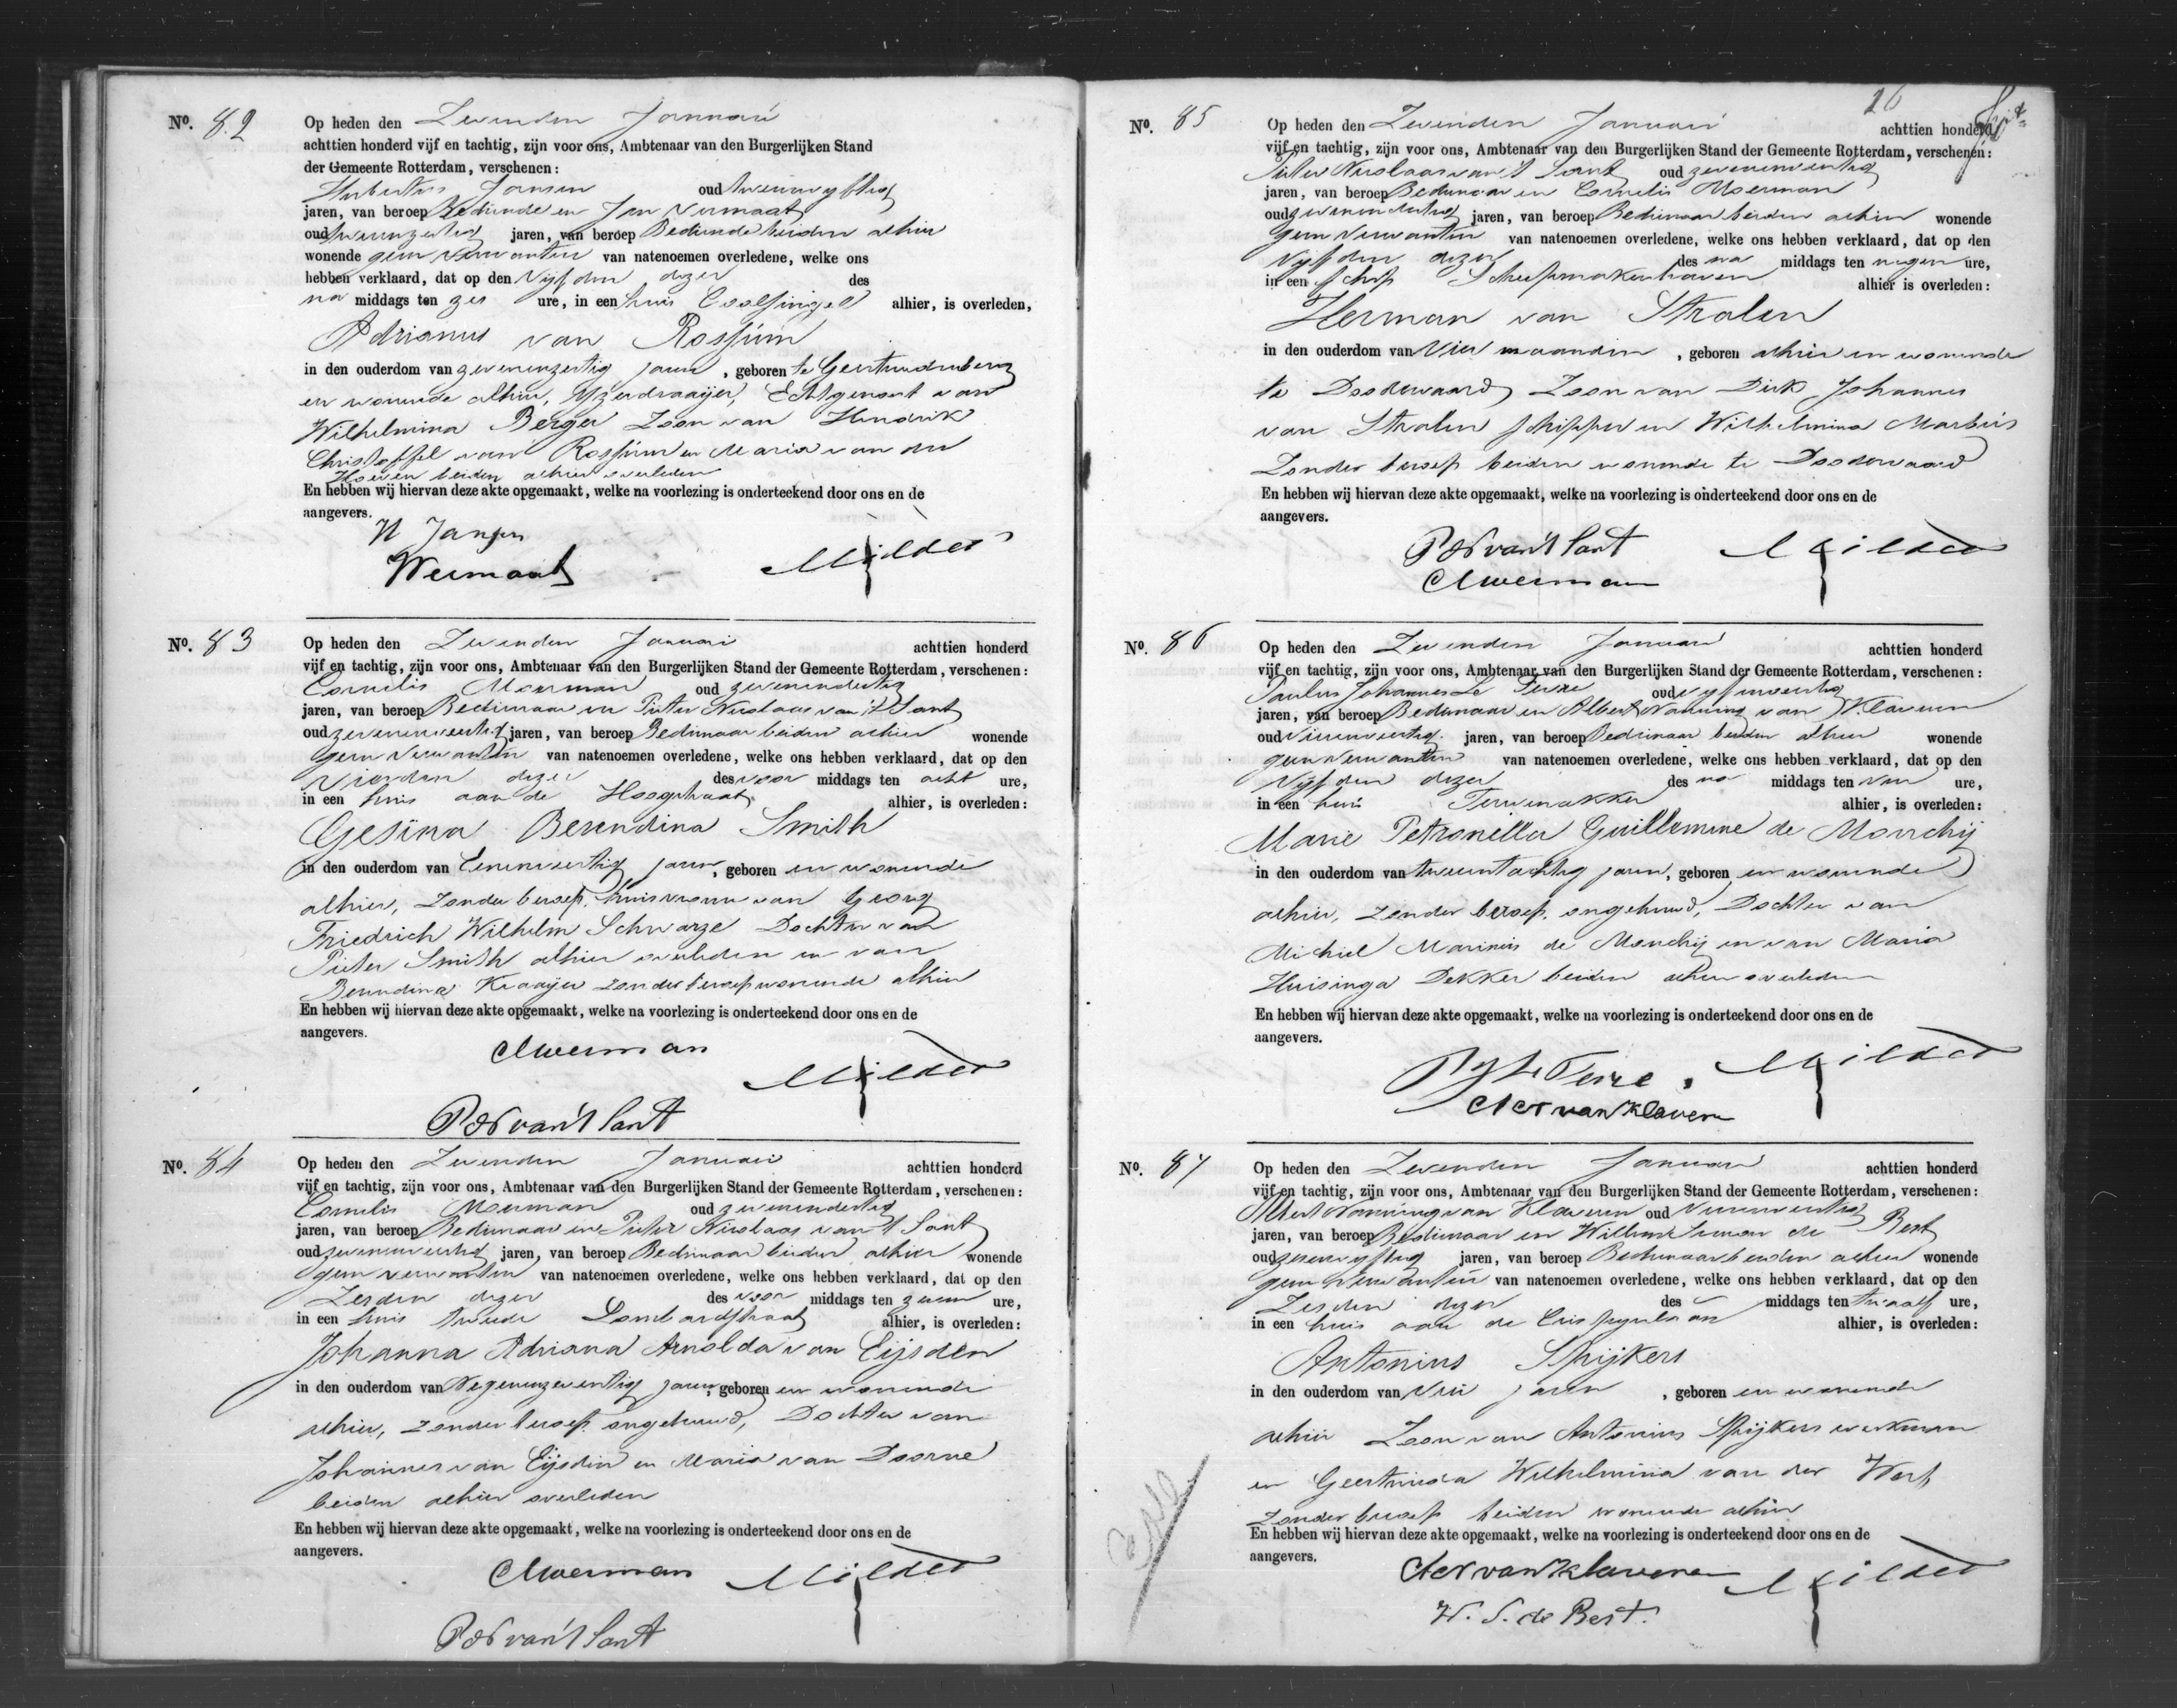 No. 82
Op heden den Zevenden Januari
achttien honderd vijf en tachtig, zijn voor ons, Ambtenaar van den Burgerlijken Stand
der Gemeente Rotterdam, verschenen:
Hubertus Jansen oud tweeenvyftig
jaren, van beroep Bediende en Jan Vermaat
oud tweeenzestig jaren, van beroep Bediende beiden alhier
wonende geen verwanten van natenoemen overledene, welke ons
hebben verklaard, dat op den Vyfden dezer des
na middags ten zes ure, in een huis Coolsingel alhier, is overleden,
Adrianus van Rossum
in den ouderdom van zevenenzestig jaren, geboren te Geertruidenberg
en wonende alhier, Yzerdraayer, Echtgenoot van
Wilhelmina Berger Zoon van Hendrik
Christoffel van Rossum en Maria van der
Hoeven beiden alhier overleden
En hebben wij hiervan deze akte opgemaakt, welke na voorlezing is onderteekend door ons en de
aangevers.
H Jansen
Vermaat Mulder
No. 83
Op heden den Zevenden Januari achttien honderd
vijf en tachtig, zijn voor ons, Ambtenaar van den Burgerlijken Stand der Gemeente Rotterdam, verschenen:
Cornelis Moerman oud zevenendertig
jaren, van beroep Bedienaar en Pieter Nicolaas van 't Sant
oud zevenenveertig jaren, van beroep Bedienaar beiden alhier wonende
geen verwanten van natenoemen overledene, welke ons hebben verklaard, dat op den
Vierden dezer des voor middags ten acht ure,
in een huis aan de Hoogstraat alhier, is overleden:
Gesina Berendina Smith
in den ouderdom van Eenenveertig jaren, geboren en wonende
alhier, zonder beroep, huisvrouw van Georg
Friedrich Wilhelm Schwarze Dochter van
Pieter Smith alhier overleden en van
Berendina Kraayer zonder beroep wonende alhier
En hebben wij hiervan deze akte opgemaakt, welke na voorlezing is onderteekend door ons en de
aangevers.
CMoerman
Mulder
PN van 't Sant
No. 84
Op heden den Zevenden Januari achttien honderd
vijf en tachtig, zijn voor ons, Ambtenaar van den Burgerlijken Stand der Gemeente Rotterdam, verschenen:
Cornelis Moerman oud zevenendertig
jaren, van beroep Bedienaar en Pieter Nicolaas van 't Sant
oud zevenenveertig jaren, van beroep Bedienaar beiden alhier wonende
geen verwanten van natenoemen overledene, welke ons hebben verklaard, dat op den
Zesden dezer des voor middags ten zeven ure,
in een huis tweede Lombardstraat alhier, is overleden:
Johanna Adriana Arnolda van Eijsden
in den ouderdom van Negenenzeventig jaren, geboren en wonende
alhier, zonder beroep, ongehuwd, Dochter van
Johannes van Eijsden en Maria van Doorne
beiden alhier overleden
En hebben wij hiervan deze akte opgemaakt, welke na voorlezing is onderteekend door ons en de
aangevers.
CMoerman Mulder
PN van 't Sant
16
No. 85
Op heden den Zevenden Januari achttien honderd
vijf en tachtig, zijn voor ons, Ambtenaar van den Burgerlijken Stand der Gemeente Rotterdam, verschenen:
Pieter Nicolaas van 't Sant oud zevenenveertig
jaren, van beroep Bedienaar en Cornelis Moerman
oud zevenendertig jaren, van beroep Bedienaar beiden alhier wonende
geen verwanten van natenoemen overledene, welke ons hebben verklaard, dat op den
Vyfden dezer des na middags ten negen ure,
in een schip Scheepmakershaven alhier is overleden:
Herman van Stralen
in den ouderdom van Vier maanden, geboren alhier en wonende
te Doodewaard Zoon van Dirk Johannes
van Stralen schipper en Wilhelmina
Zonder beroep beiden wonende te Doodewaard
En hebben wij hiervan deze akte opgemaakt, welke na voorlezing is onderteekend door ons en de
aangevers.
PN van 't Sant Mulder
CMoerman
No. 86
Op heden den Zevenden Januari achttien honderd
vijf en tachtig, zijn voor ons, Ambtenaar van den Burgerlijken Stand der Gemeente Rotterdam, verschenen:
Paulus Johannes Le Fevre oud vyfenveertig
jaren, van beroep Bedienaar en Albert Nanning van Klaveren
oud vierenveertig jaren, van beroep Bedienaar beiden alhier wonende
geen verwanten van natenoemen overledene, welke ons hebben verklaard, dat op den
Vyfden dezer des na middags ten vier ure,
in een huis Terwenakker alhier, is overleden:
Marie Petronella Guillemine de Monchij
in den ouderdom van tweeentachtig jaren, geboren en wonende
alhier, zonder beroep, ongehuwd, Dochter van
Michiel Marinus de Monchij en van Maria
Huisinga Dekker beiden alhier overleden
En hebben wij hiervan deze akte opgemaakt, welke na voorlezing is onderteekend door ons en de
aangevers.
PJ Le Fevre Mulder
AN van Klaveren
No. 87
Op heden den Zevenden Januari achttien honderd
vijf en tachtig, zijn voor ons, Ambtenaar van den Burgerlijken Stand der Gemeente Rotterdam, verschenen:
Albert Nanning van Klaveren oud vierenveertig
jaren, van beroep Bedienaar en Willem Simon de Best
oud zesenvyftig jaren, van beroep Bedienaar beiden alhier wonende
geen verwanten van natenoemen overledene, welke ons hebben verklaard, dat op den
Zesden dezer des middags ten twaalf ure,
in een huis aan de Crispijnlaan alhier, is overleden:
Antonius Spijkers
in den ouderdom van Drie jaren, geboren en wonende
alhier Zoon van Antonius Spijkers werkman
en Geertruida Wilhelmina van der Werf
Zonder beroep beiden wonende alhier
En hebben wij hiervan deze akte opgemaakt, welke na voorlezing is onderteekend door ons en de
aangevers.
AN van Klaveren Mulder
W. S. de Best.